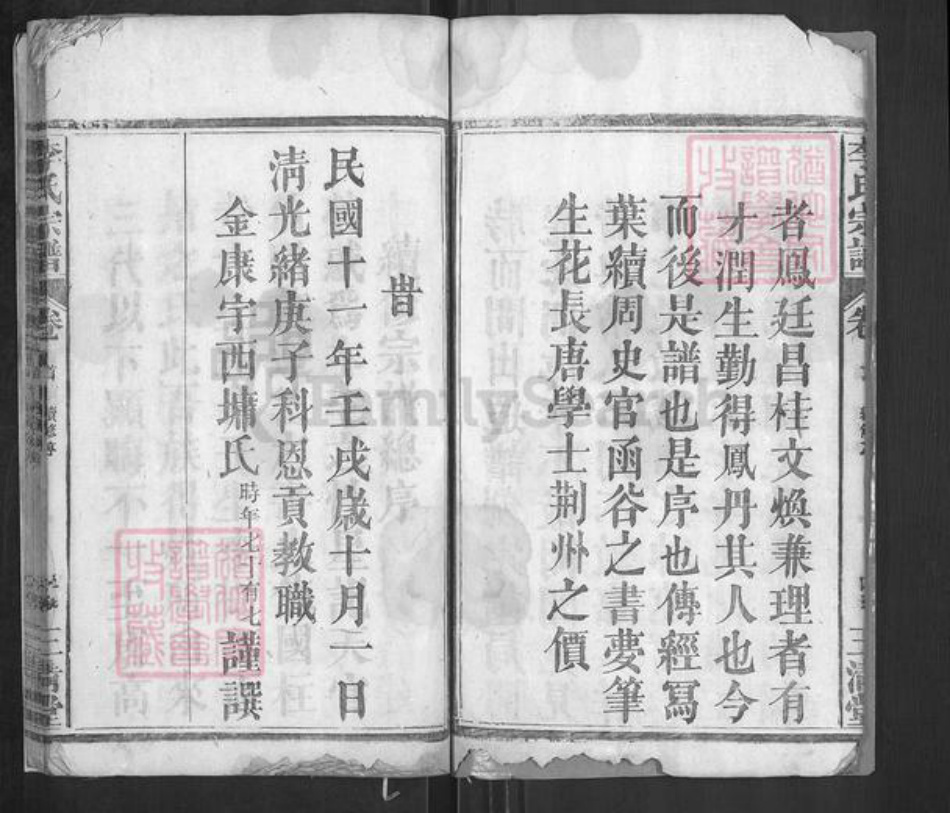 李氏宗譜
者鳳廷昌桂文煥兼理者有
才潤生勤得鳳丹其人也今
而後是譜也是序也傳經寫
葉續周史官函谷之書夢筆
生花長唐學士荆州之價
旹
民國十一年壬戌歲十月一日
清光緒庚子科恩貢教職
金康宇西墉氏時年七十有七謹譔
李氏宗譜
三清堂
FamilySearch